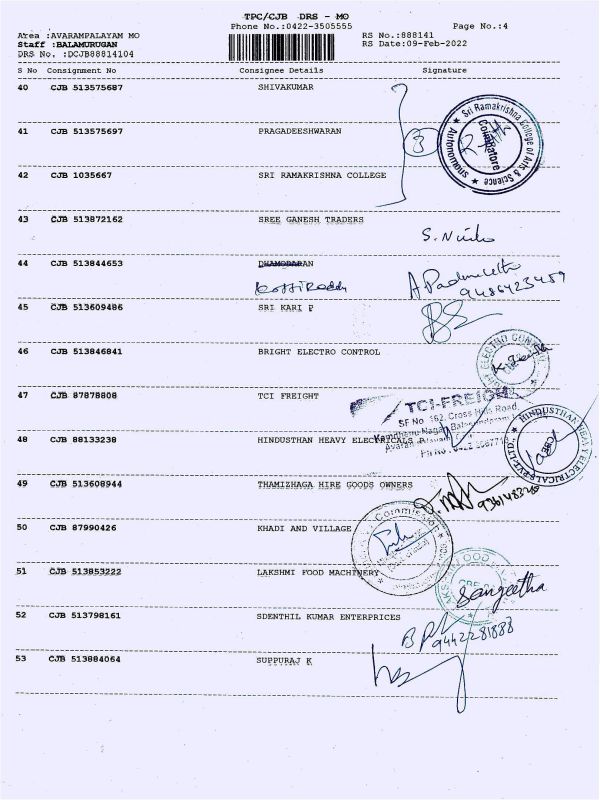 TPC/CJB DRS - MO
Phone No.:0422-3505555
Page No.:4
Area :AVARAMPALAYAM MO
RS No.:888141
Staff :BALAMURUGAN
RS Date:09-Feb-2022
DRS No. :DCJB88814104
S No Consignment No Consignee Details Signature
40 CJB 513575687 SHIVAKUMAR
41 CJB 513575697 PRAGADEESHWARAN
3
Sri Ramakrishna College of Arts & Science
Autonomous
Coimbatore
42 CJB 1035667 SRI RAMAKRISHNA COLLEGE
43 CJB 513872162 SREE GANESH TRADERS
44 CJB 513844653 DHAMODARAN
9486423459
45 CJB 513609486 SRI KARI P
46 CJB 513846841 BRIGHT ELECTRO CONTROL
47 CJB 87878808 TCI FREIGHT
TCI-FREIGHT
SF No 162, Cross Hills Road,
48 CJB 88133238 HINDUSTHAN HEAVY ELECTRICALS P
HINDUSTHAN HEAVY ELECTRICALS PVT.LTD.,
CBE
49 CJB 513608944 THAMIZHAGA HIRE GOODS OWNERS
50 CJB 87990426 KHADI AND VILLAGE
Commission
51 CJB 513853222 LAKSHMI FOOD MACHINERY
Sangeetha
52 CJB 513798161 SDENTHIL KUMAR ENTERPRICES
9442281888
53 CJB 513884064 SUPPURAJ K